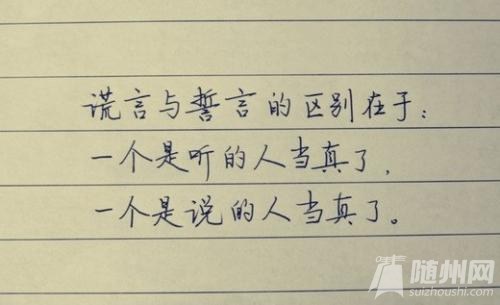 谎言与誓言的区别在于：
一个是听的人当真了，
一个是说的人当真了。
随州网
suizhoushi.com